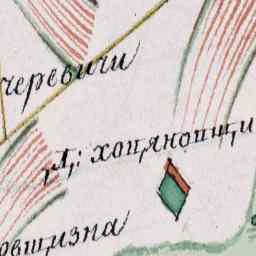 черевичи
Д: хопянопщи
овщизна